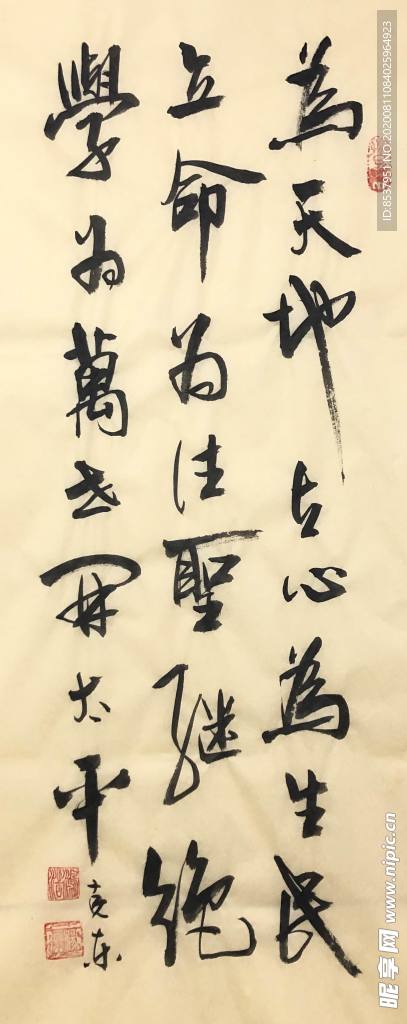 為天地立心為生民
立命为往聖继绝
學为萬世開太平
克东
ID:8537951 NO:20200811084025964923
昵享网 www.nipic.cn